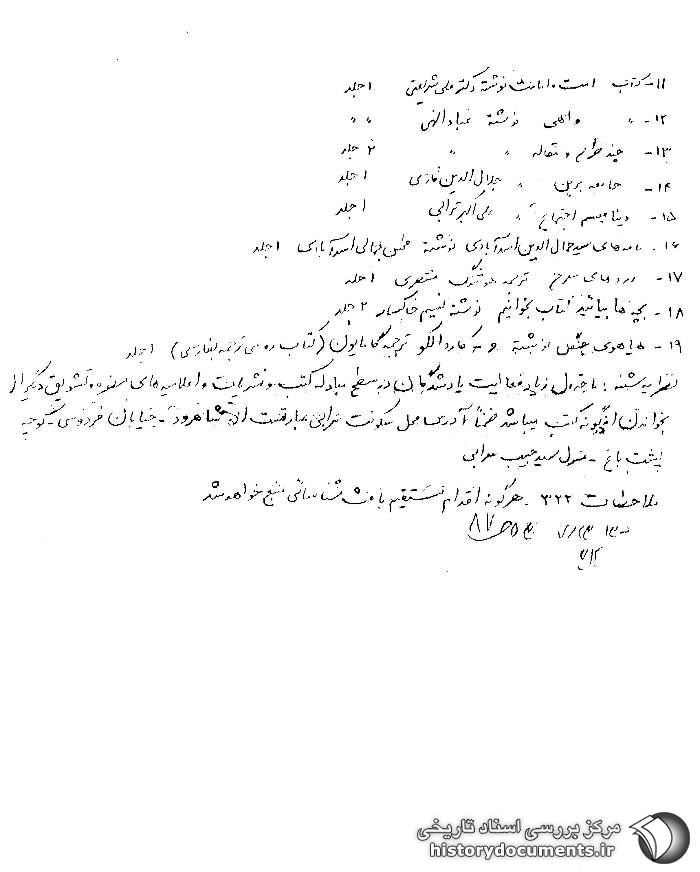 ۱۱- کتاب امت و امامت نوشته دکتر علی شریعتی ۱ جلد
۱۲- " واهی نوشته عبادالهی " "
۱۳- چند طرح و مقاله " " ۲ جلد
۱۴- جامعه برین " جلال الدین فارسی ۱ جلد
۱۵- دینامیسم اجتماع " علی اکبر ترابی ۱ جلد
۱۶- نامه های سید جمال الدین اسدآبادی نوشته جمالی اسدآبادی ۱ جلد
۱۷- سرخ ترجمه هوشنگ منتصری ۱ جلد
۱۸- بچه ها بیائید کتاب بخوانیم نوشته نسیم خاکسار ۲ جلد
۱۹- هیاهوی نوشته ترجمه گامایون (کتاب روسی ترجمه بفارسی) ۱ جلد
نظریه شنبه: با قبول زیاد فعالیت یادشدگان در سطح مبادله کتب و نشریات و اعلامیه های مضره و تشویق دیگران
بخواندن اینگونه کتب میباشد ضمناً آدرس محل سکونت سرابی عبارتست از شاهرود - خیابان فردوسی - کوچه
پشت باغ - منزل سید حبیب سرابی
ملاحظات ۳۲۲. هرگونه اقدام مستقیم باعث شناسائی منبع خواهد شد
مرکز بررسی اسناد تاریخی
historydocuments.ir